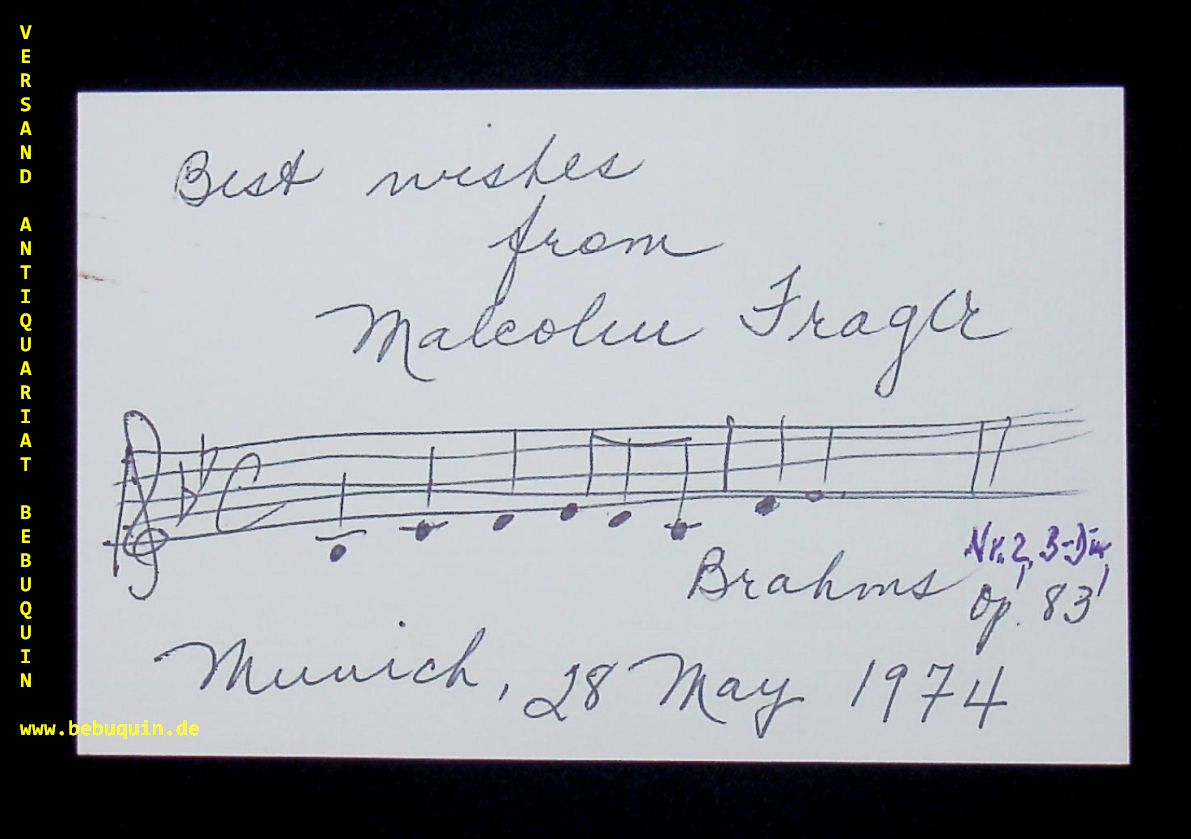 VERSAND ANTIQUARIAT BEBUQUIN
www.bebuquin.de
Best wishes
from
Malcolm Frager
Nr. 2, B-Dur
Brahms Op. 83
Munich, 28 May 1974